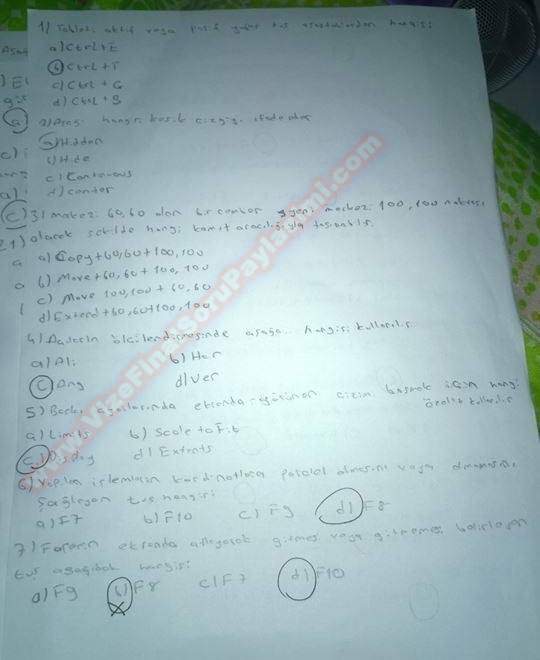 1) Tableti aktif veya pasif yapan tuş aşağıdakilerden hangisi:
a) Ctrl + E
b) Ctrl + T
c) Ctrl + G
d) Ctrl + S
2) hangi kesik çizgiyi ifade eder
a) Hidden
b) Hide
c) Contonuous
d) center
3) merkezi 60,60 olan bir cember yeni merkezi 100,100 noktası
olacak şekilde hangi komut aracılığıyla taşınabilir.
a) Copy + 60,60 + 100,100
b) Move + 60,60 + 100,100
c) Move 100,100 + 60,60
d) Extend + 60,60 + 100,100
4) ölçülendirmesinde hangisi kullanılır
a) Ali b) Hor
c) Ang d) Ver
5) Baskı ekranda görünen çizim basmak için hangi
özellik kullanılır
a) Limits b) Scale to Fit
c) Display d) Extents
6) Yapılan işlemlerin koordinatlara paralel olmasını veya olmamasını
sağlayan tuş hangisi
a) F7 b) F10 c) F9 d) F8
7) Farenin ekranda atlayarak gitmesi veya gitmemesi belirleyen
tuş aşağıdaki hangisi:
a) F9 b) F8 c) F7 d) F10
www.VizeFinalSoruPaylasimi.com